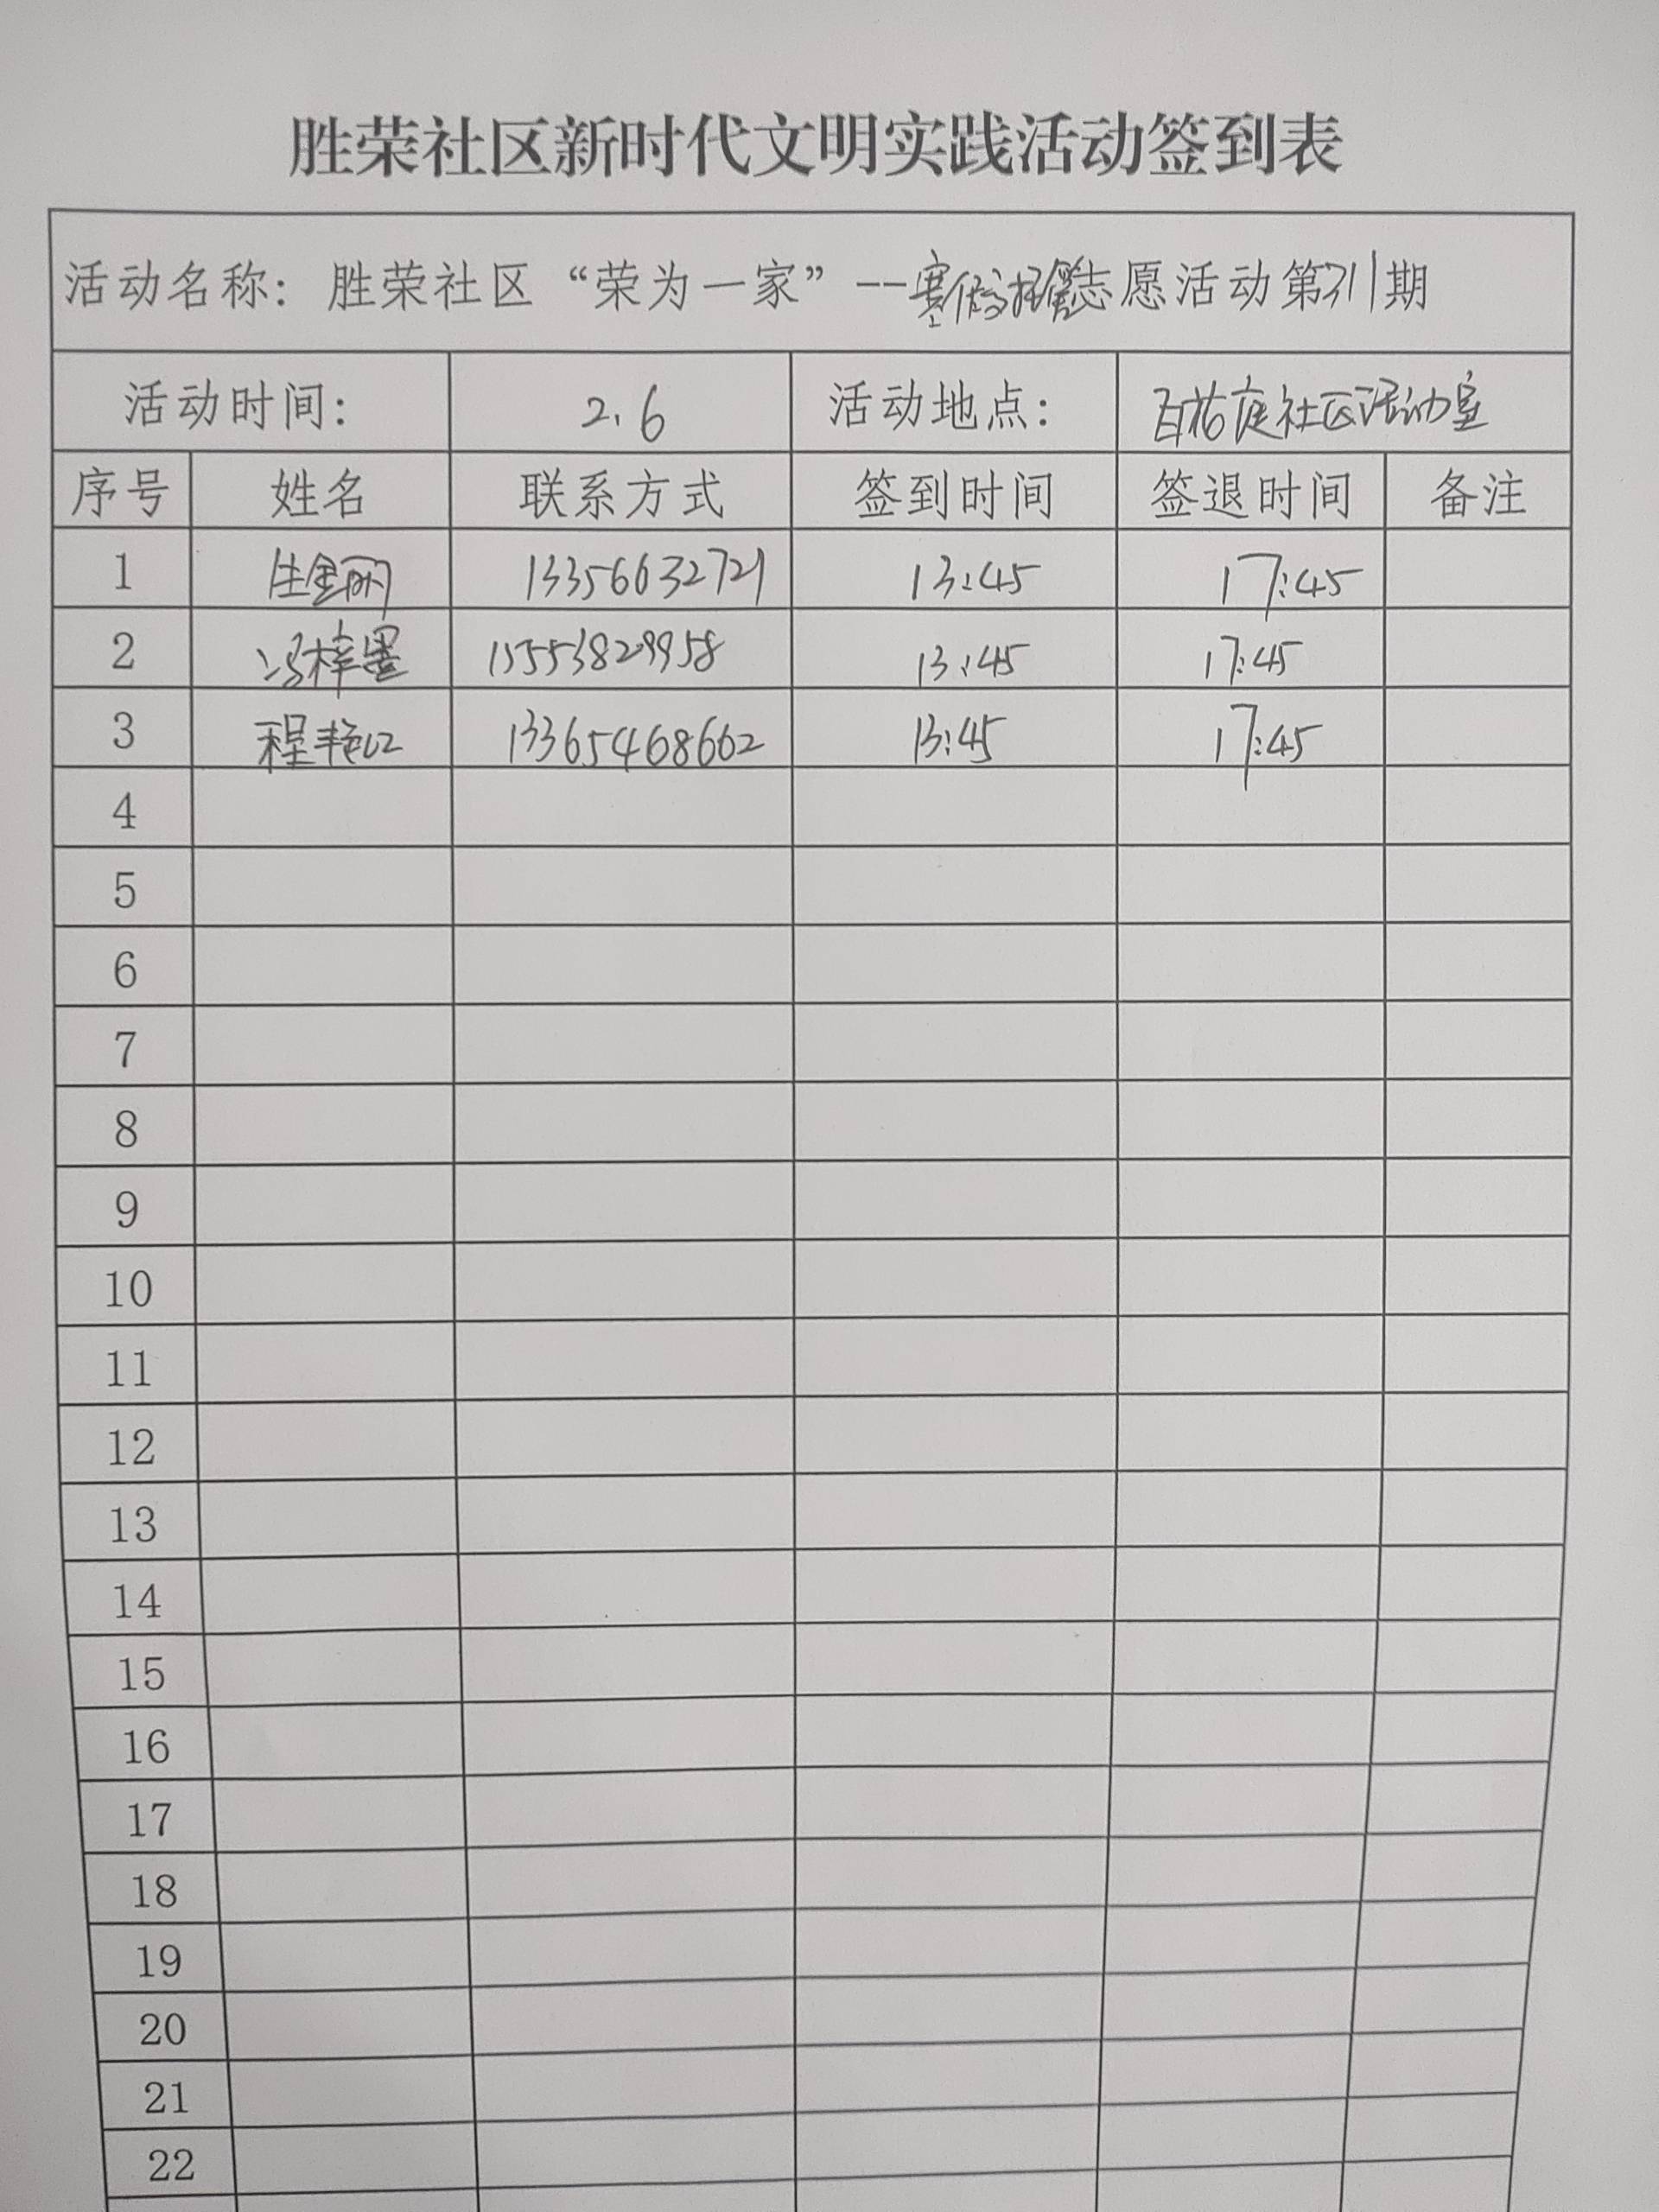 胜荣社区新时代文明实践活动签到表
活动名称：胜荣社区“荣为一家”--寒假托管志愿活动第311期
活动时间： 2.6 活动地点： 百花庭社区活动室
序号 姓名 联系方式 签到时间 签退时间 备注
1 金丽 13356632721 13:45 17:45
2 冯梓墨 15553829958 13:45 17:45
3 程艳红 13365468662 13:45 17:45
4
5
6
7
8
9
10
11
12
13
14
15
16
17
18
19
20
21
22